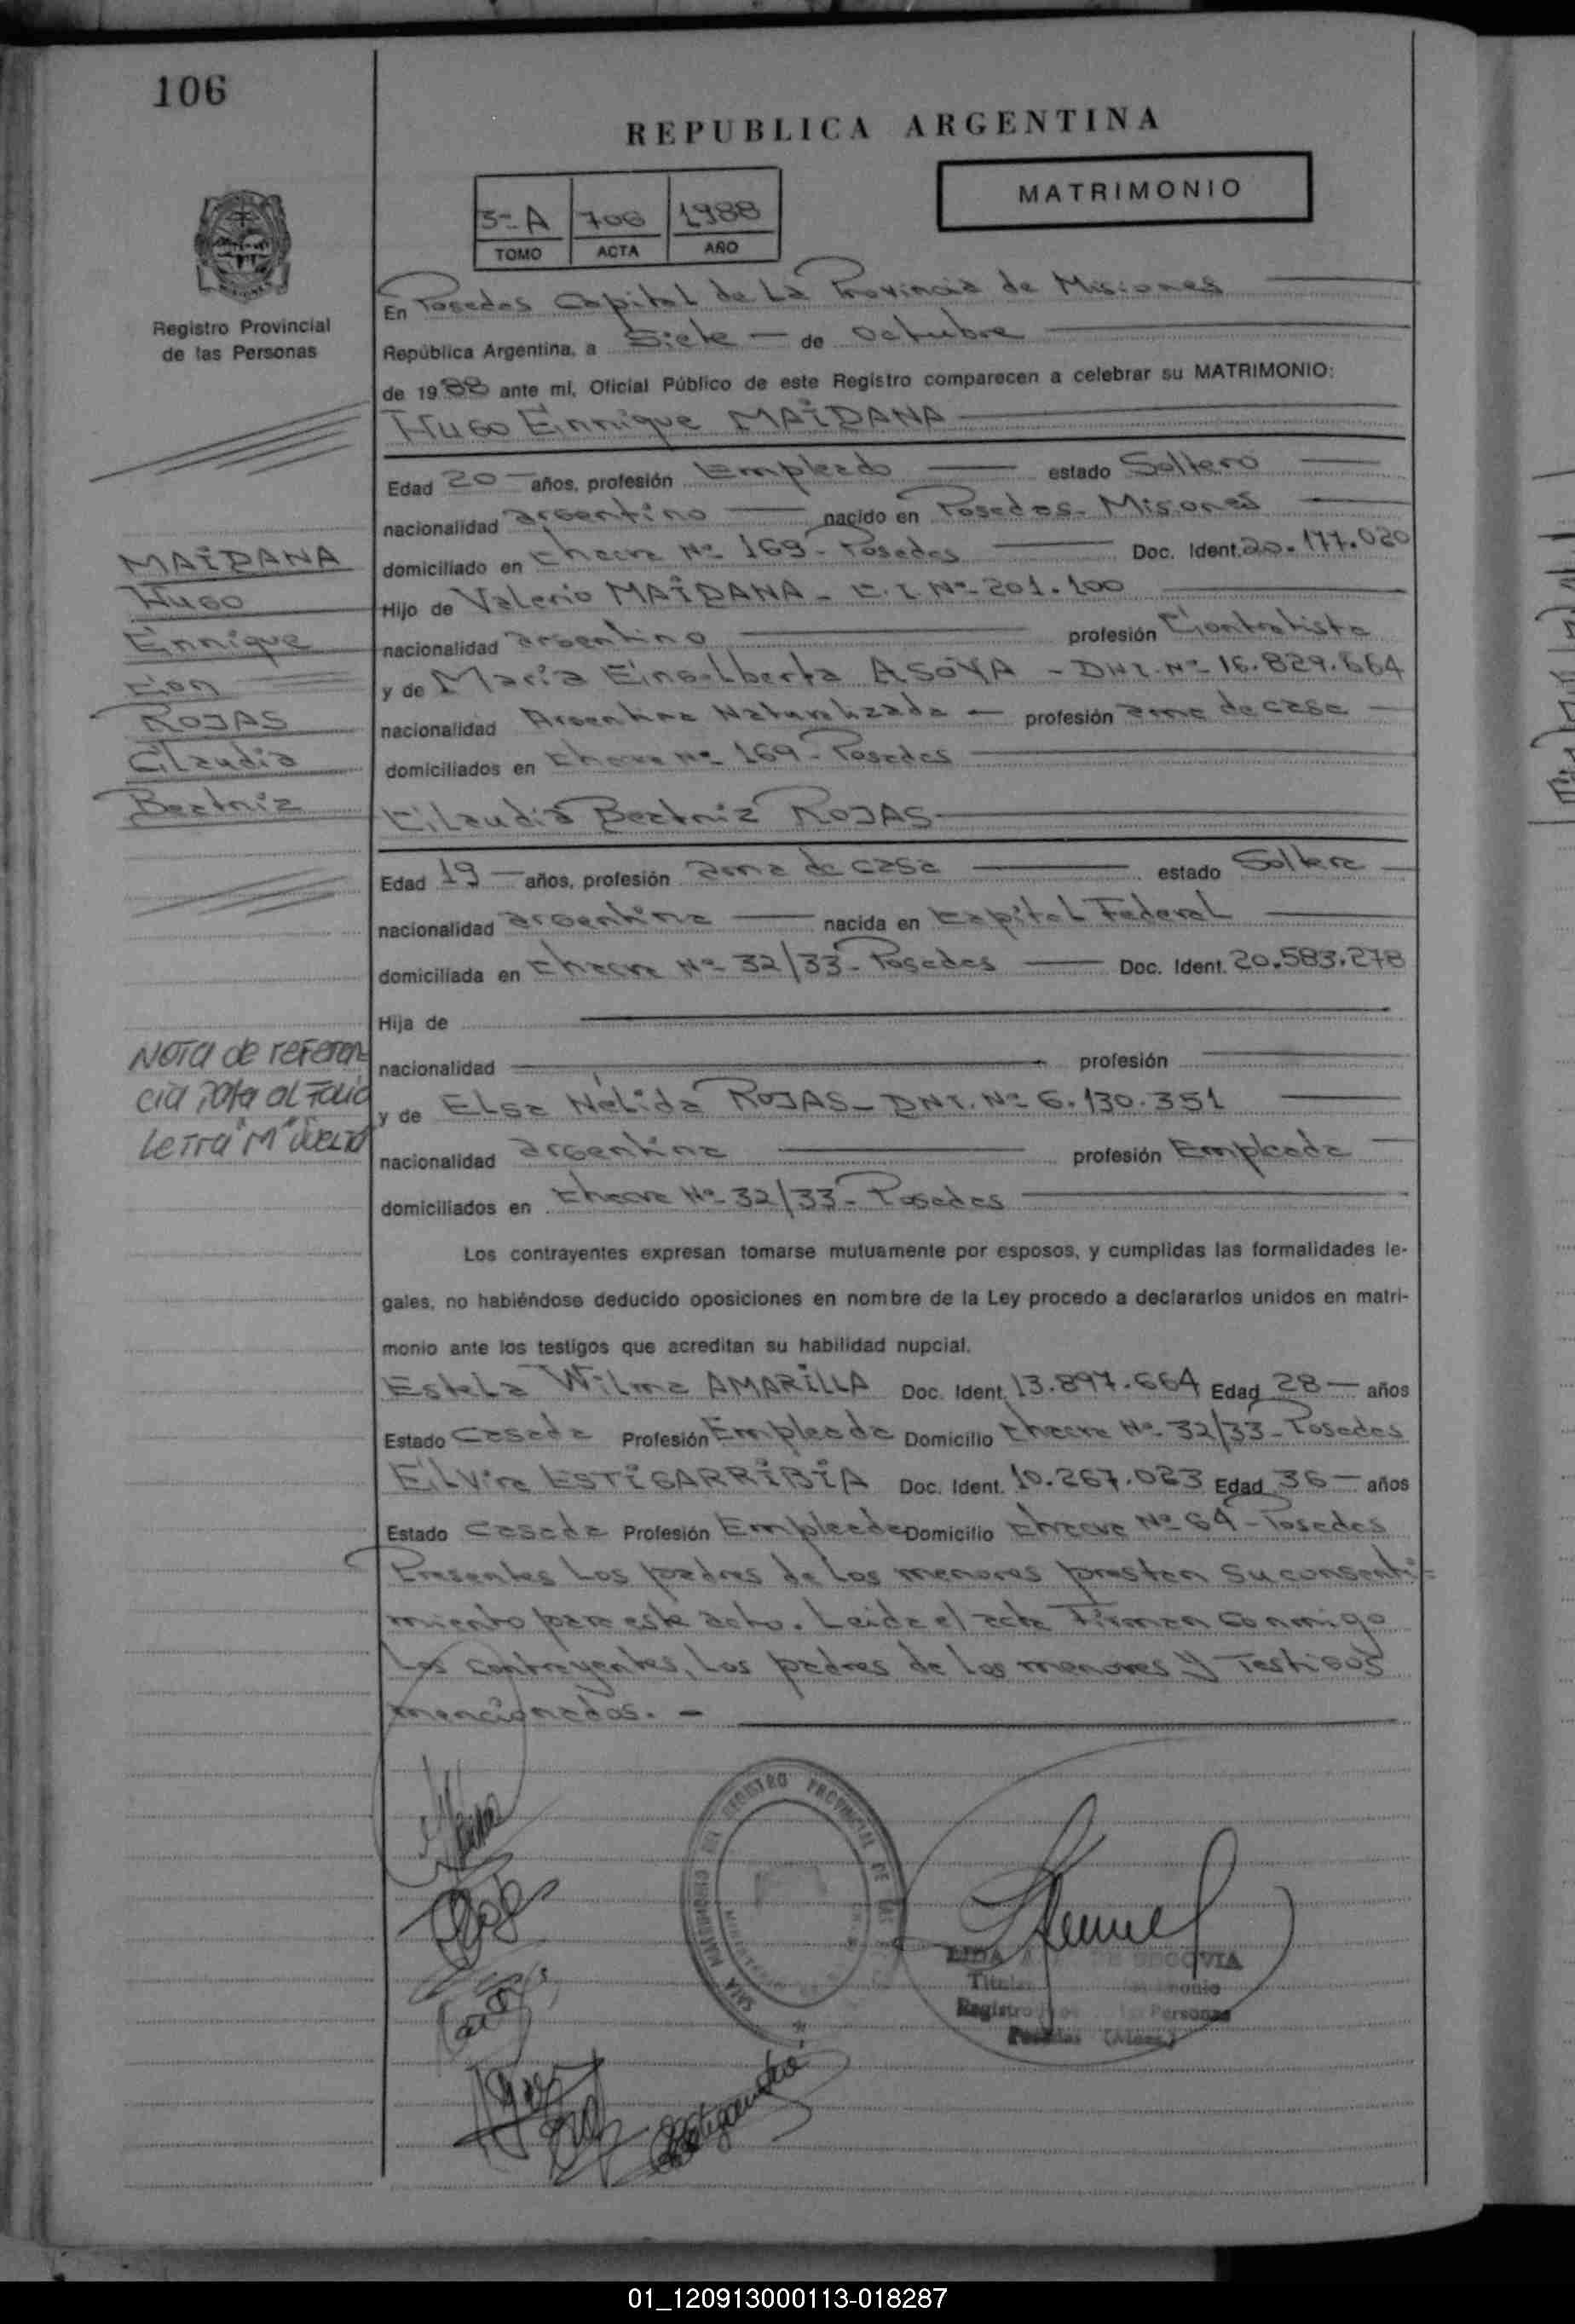 106
REPUBLICA ARGENTINA
MATRIMONIO
3º A 706 1988
TOMO ACTA AÑO
Registro Provincial
de las Personas
En Posadas Capital de La Provincia de Misiones
República Argentina, a Siete - de Octubre
de 1988 ante mí, Oficial Público de este Registro comparecen a celebrar su MATRIMONIO:
Hugo Enrrique MAIDANA
Edad 20 - años, profesión Empleado estado Soltero
nacionalidad argentino nacido en Posadas - Misiones
domiciliado en Chacra Nº 169 - Posadas Doc. Ident. 20.177.020
Hijo de Valerio MAIDANA - C.I. Nº 201.100
nacionalidad argentino profesión Contratista
y de María Eingelberta ASOYA - DNI. Nº 16.829.664
nacionalidad Argentina Naturalizada - profesión ama de casa
domiciliados en Chacra Nº 169 - Posadas
MAIDANA
Hugo
Enrrique
Con
ROJAS
Claudia
Beatriz
Claudia Beatriz ROJAS
Edad 19 - años, profesión ama de casa estado Soltera
nacionalidad argentina nacida en Capital Federal
domiciliada en Chacra Nº 32/33 - Posadas Doc. Ident. 20.583.278
Hija de
nacionalidad profesión
y de Elsa Nélida ROJAS - DNI. Nº 6.130.351
nacionalidad argentina profesión Empleada
domiciliados en Chacra Nº 32/33 - Posadas
NOTA de referen
cia pasa al Folio
Letra "M" vuelta
Los contrayentes expresan tomarse mutuamente por esposos, y cumplidas las formalidades le-
gales, no habiéndose deducido oposiciones en nombre de la Ley procedo a declararlos unidos en matri-
monio ante los testigos que acreditan su habilidad nupcial.
Estela Wilma AMARILLA Doc. Ident. 13.897.664 Edad 28 - años
Estado Casada Profesión Empleada Domicilio Chacra Nº 32/33 - Posadas
Elvira ESTIGARRIBIA Doc. Ident. 10.267.023 Edad 36 - años
Estado Casada Profesión Empleada Domicilio Chacra Nº 64 - Posadas
Presentes Los padres de Los menores prestan su consenti=
miento para este acto. Leida el acta Firman conmigo
Los contrayentes, Los padres de los menores y Testigos
mencionados. -
REGISTRO PROVINCIAL DE LAS
LIDA DE SEGOVIA
Registro Personas
Posadas
01_120913000113-018287